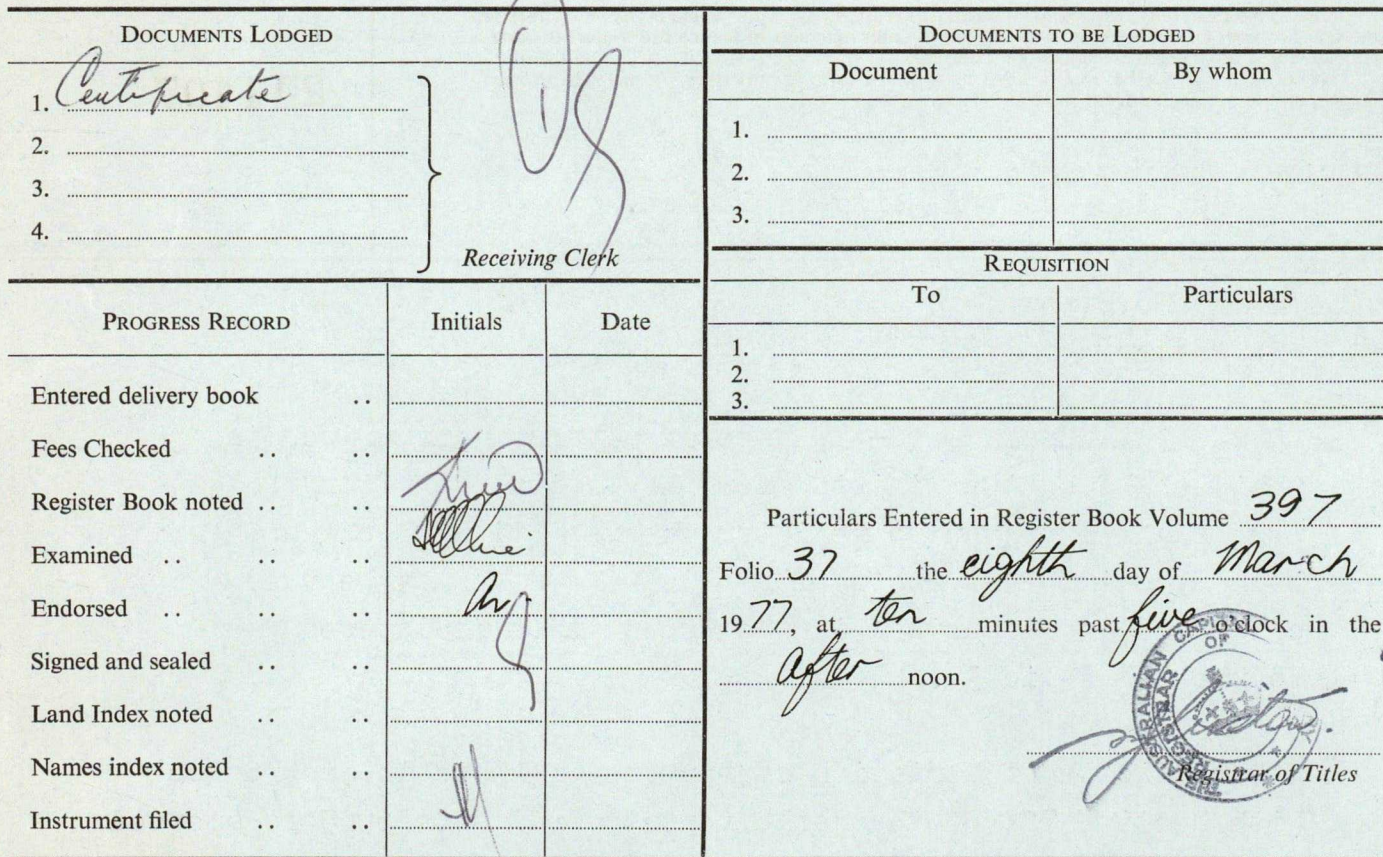 DOCUMENTS LODGED
1. Certificate
2.
3.
4.
Receiving Clerk
PROGRESS RECORD Initials Date
Entered delivery book ..
Fees Checked .. ..
Register Book noted .. ..
Examined .. .. ..
Endorsed .. .. ..
Signed and sealed .. ..
Land Index noted .. ..
Names index noted .. ..
Instrument filed .. ..
DOCUMENTS TO BE LODGED
Document By whom
1.
2.
3.
REQUISITION
To Particulars
1.
2.
3.
Particulars Entered in Register Book Volume 397
Folio 37 the eighth day of March
1977, at ten minutes past five o'clock in the
after noon.
THE AUSTRALIAN CAPITAL
REGISTRAR OF
Registrar of Titles